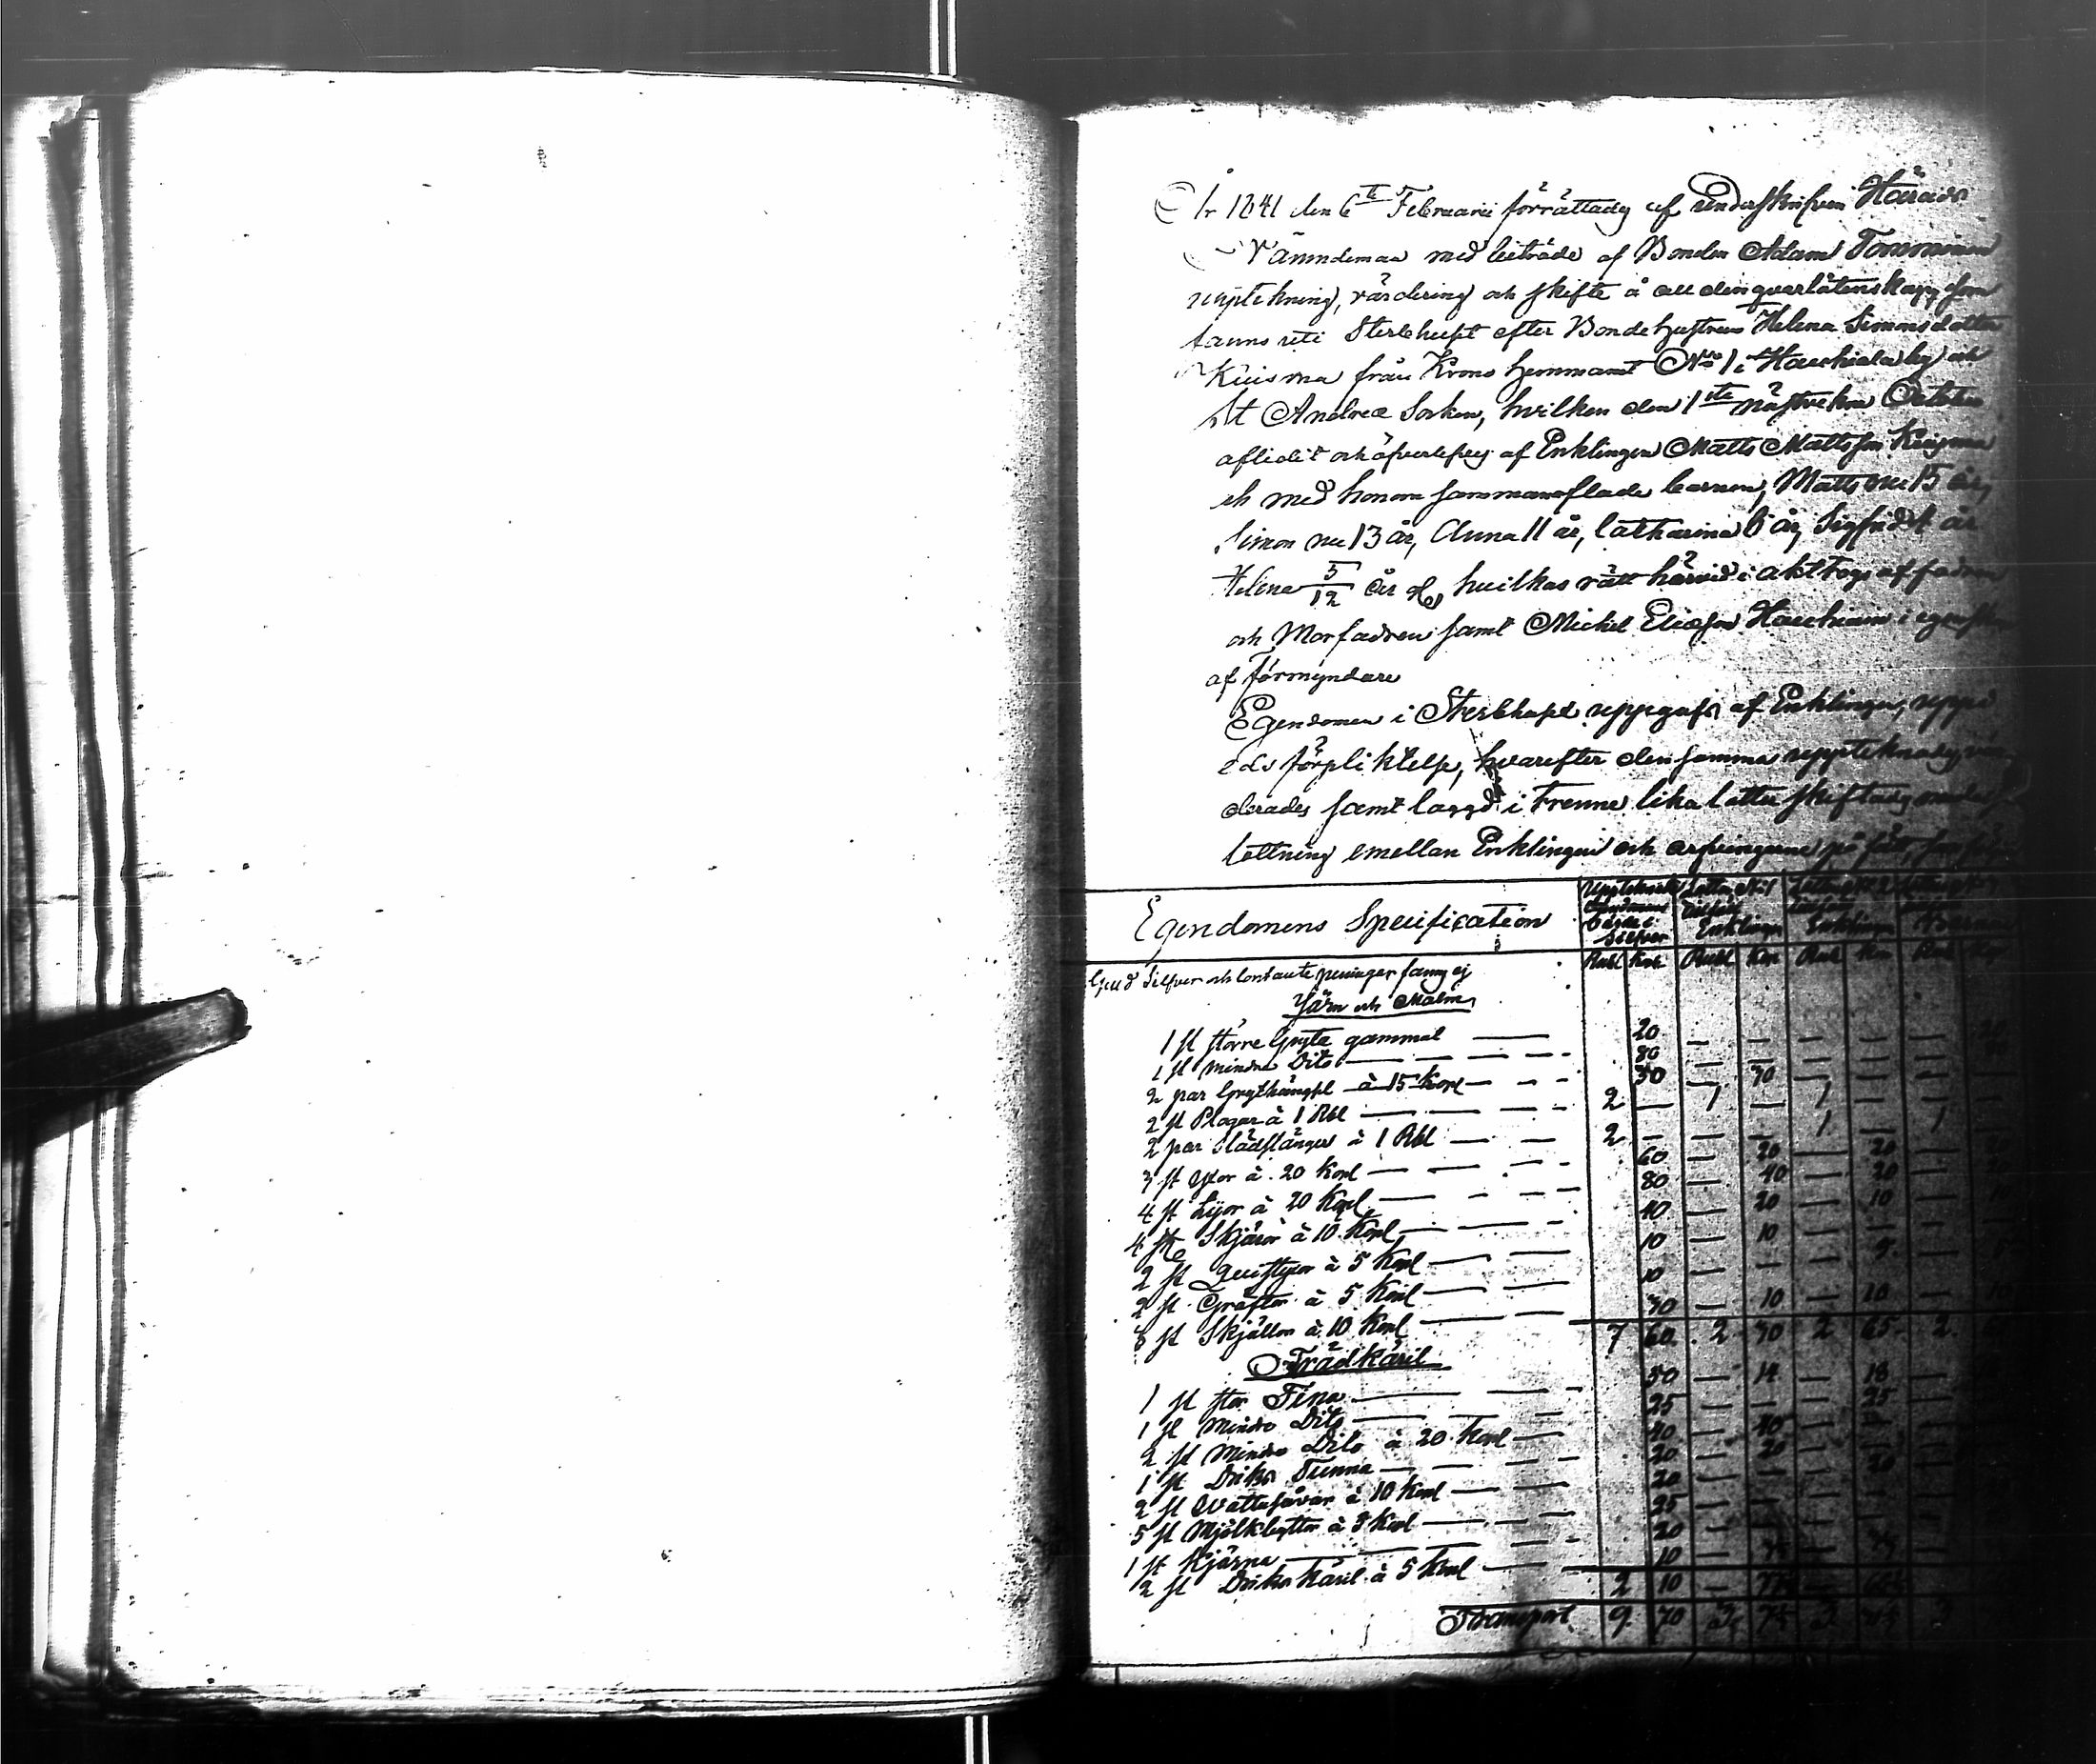 År 1841 den 6te Februarii förrättades af Underskrifven Härads
Nämndeman med biträde af Bonden Adam
upptekning, värdering och skifte å all den qvarlåtenskap som
fanns uti Sterbhuset efter Bondehustrun Helena Simonsdotter
Kuisma från Krono hemmanet No 1 i Haukiala by och
St Andreæ Socken, hvilken den 1ste nästvekne October
aflidit och öfverlefves af Enklingen Matts Mattsson Kuisma
och med honom sammanaflade barnen, Matts nu 15 år,
Simon nu 13 år, Anna 11 år, Catharina 6 år, Sigfrid 4 år
Helena 5/12 år, hvilkas rätt härvid i akt togs af fadren
och Morfadren samt Michel Eliasson Haukiain i egenskap
af Förmyndare
Egendomen i Sterbhuset uppgafs af Enklingen, uppå
eds förpliktelse, hvarefter den samma upptecknades, vär
derades samt laggd i Trenne lika lotter skiftades medelst
lottning emellan Enklingen och arfvingarne på sätt, som föl
Egendomens Specification
Upptecknade Egendomens värde i Silfver
Lotten No 1 tillföll Enklingen
Lotten No 2 tillföll Enklingen
Lotten No 3 Barnen
Rubl Kop Rubl Kop Rub Kop Rub Kop
Guld Silfver och Contante penningar fanns ej
Järn och Malm
1 st större Gryta gammal — 20 — — — —
1 st mindre Dito — 80 — — — —
2 par Grythängsl à 15 Kopl — 30 — 30 — —
2 st Plogar à 1 Rbl — 2 — 1 — 1 —
2 par Slädstänger à 1 Rbl — 2 — — — 1 — 1
3 st Yxor à 20 Kopl — 60 — 20 — 20
4 st Lijor à 20 Kopl — 80 — 40 — 20
4 st Skjäror à 10 Kopl — 40 — 20 — 10 — 10
2 st Quistyxor à 5 Kopl — 10 — 10 — —
2 st Gräftor à 5 Kopl — 10 — — — 5 — 5
3 st Skjällor à 10 Kopl — 30 — 10 — 10 — 10
7 60 2 30 2 65 2
Trädkäril
1 st stor Tina — 50 — 14 — 18 —
1 st Mindre Dito — 25 — — — 25 —
2 st Mindre Dito à 20 Kopl — 40 — 40 — —
1 st Dricks Tunna — 20 — 20 — —
2 st Vattusåvar à 10 Kopl — 20 — — — 20 —
5 st Mjölkbyttor à 5 Kopl — 25 — — —
1 st Kjärna — 20 — — —
2 st Dricks käril à 5 Kopl — 10 —
2 10 —
Transport 9 70 3